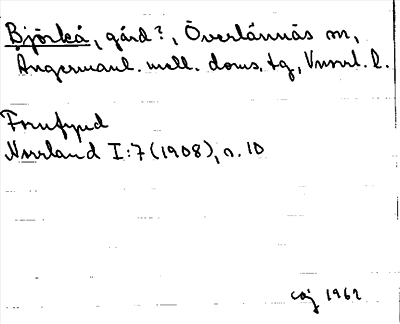 Björkå, gård?, Överlännäs sn,
Ångermanl. mell. doms. tg, Vnorrl. l.
Fornfynd
Norrland I:7 (1908), s. 10
1962